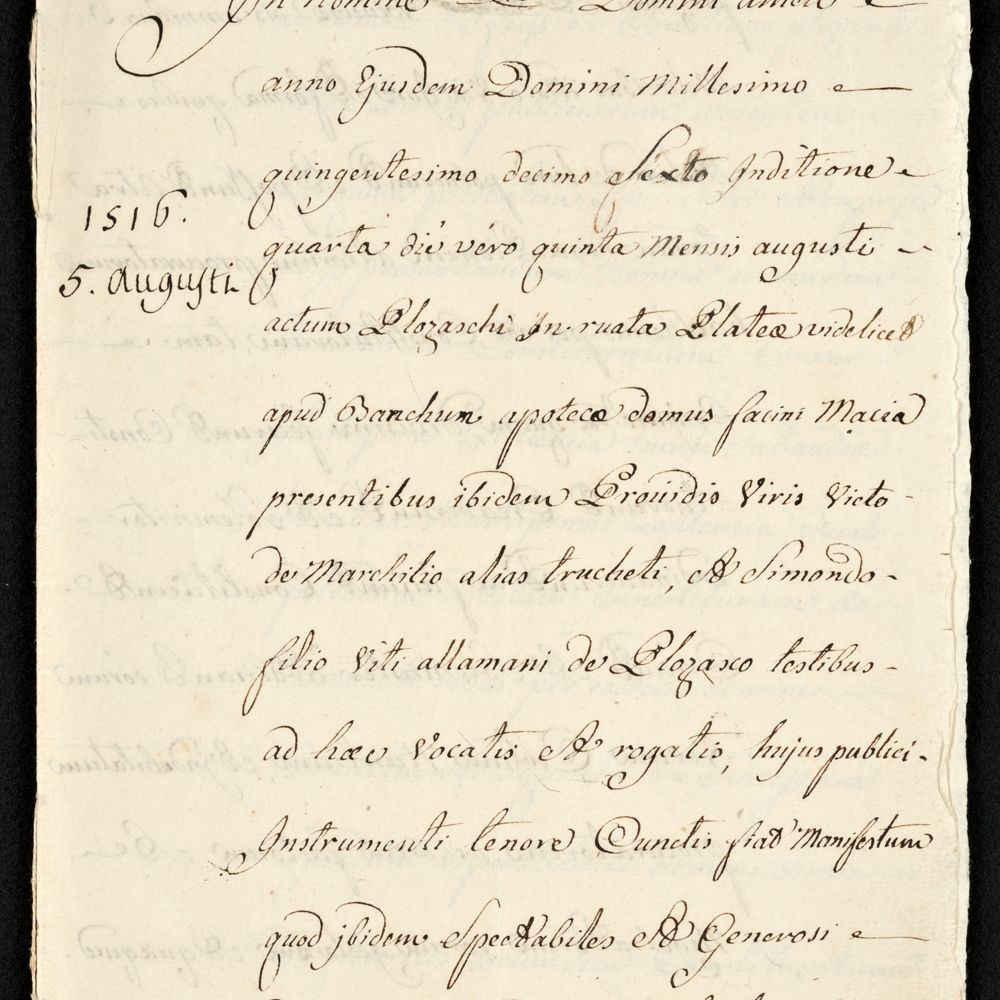 In nomine Domini
anno Ejusdem Domini Millesimo
quingentesimo decimo Sexto Inditione
1516.
quarta die vero quinta Mensis augusti
5. Augusti
actum Plozaschi In ruata Plateæ videlicet
apud Banchum apotecæ domus facini Macia
presentibus ibidem Providis Viris Vieto
de Marchilio alias trucheti, et Simondo
filio Viti allamani de Plozasco testibus
ad hæc Vocatis et rogatis, hujus publici
Instrumenti tenore Cunctis fiat Manifestum
quod jbidem Spectabiles et Generosi